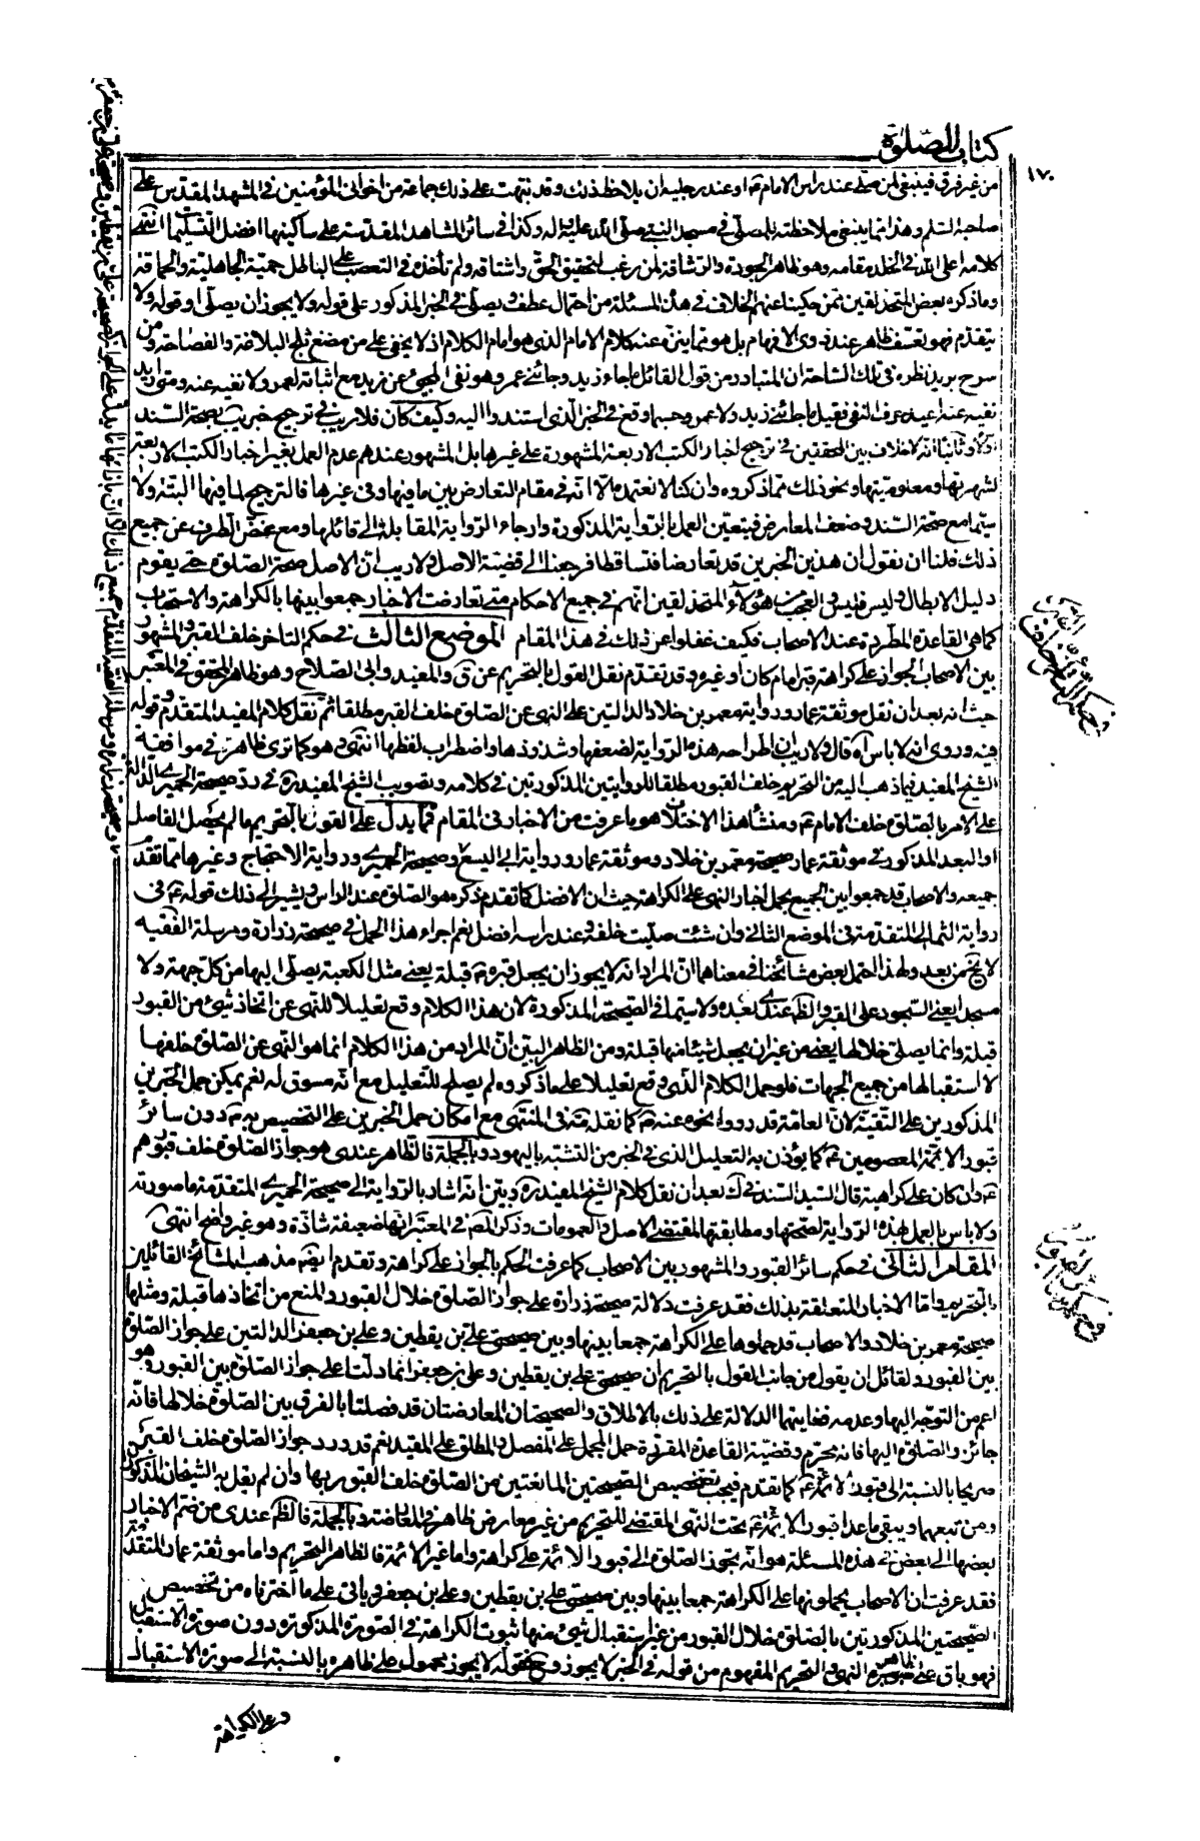 كتاب الصلوة
١٧٠
من غير فرق فينبغى لمن صلى عند راس الامام ع او عند رجليه ان يلاحظ ذلك وقد نبهت على ذلك جماعة من اخوانى المؤمنين فى المشهد المقدس على
صاحبه السلم وهذا مما ينبغى ملاحظته للمصلى فى مسجد النبى صلى الله عليه واله وكذا فى سائر المشاهد المقدسة على ساكنيها افضل التسليمات انتهى
كلامه اعلى الله فى الخلد مقامه وهو ظاهر الجودة والرشاقة لمن رغب لتحقيق الحق واشتاقه ولم تأخذه فى التعصب على الباطل حمية الجاهلية والحماقة
وما ذكره بعض المتحذلقين ممن حكينا عنهم الخلاف فى هذه المسئلة من احتمال عطف ويصلى فى الخبر المذكور على قوله ولا يجوز ان يصلى او قوله ولا
يتقدم فهو تعسف ظاهر عند ذوى الافهام بل هو مما ينزه عنه كلام الامام الذى هو امام الكلام اذ لا يخفى على من رضع ثدى البلاغة والفصاحة ومن
سرح بريد نظره فى تلك الساحة ان المتبادر من قول القائل ما جاء زيد وجائنى عمرو هو نفى المجئ عن زيد مع اثباته لعمرو لا نفيه عنه ومتى اريد
نفيه عنه اعيد حرف النفى فقيل ما جائنى زيد ولا عمرو حسبما وقع فى الخبر الذى استندوا اليه وكيف كان فلا ريب فى ترجيح خبر يب بصحة السند
اولا وثانيا انه لا خلاف بين المحققين فى ترجيح اخبار الكتب الاربعة المشهورة على غيرها بل المشهور عندهم عدم العمل بغير اخبار الكتب الاربعة
لشهرتها ومعلوميتها ونحو ذلك مما ذكروه وان كنا لا نعتمده الا انه فى مقام التعارض بين ما فيها وفى غيرها فالترجيح لما فيها البتة ولا
سيما مع صحة السند وضعف المعارض فيتعين العمل بالرواية المذكورة وارجاء الرواية المقابلة الى قائلها ومع غض الطرف عن جميع
ذلك فلنا ان نقول ان هذين الخبرين قد تعارضا فتساقطا فرجعنا الى قضية الاصل ولا ريب ان الاصل صحة الصلوة حتى يقوم
دليل الابطال وليس فليس والعجب من هؤلآء المتحذلقين انهم فى جميع الاحكام متى تعارضت الاخبار جمعوا بينها بالكراهة والاستحباب
كما هى القاعدة المطردة عند الاصحاب فكيف غفلوا عن ذلك فى هذا المقام الموضع الثالث فى حكم التاخر خلف القبر والمشهور
بين الاصحاب الجواز على كراهة قبر امام كان او غيره وقد تقدم نقل القول بالتحريم عن ق والمفيد وابى الصلاح وهو ظاهر المحقق فى المعتبر
حيث انه بعد ان نقل موثقة عمار ورواية معمر بن خلاد الدالتين على النهى عن الصلوة خلف القبر مطلقا ثم نقل كلام المفيد المتقدم وقوله
فيه وروى انه لا باس اه قال ولا ريب ان اطراحه هذه الرواية لضعفها وشذوذها واضطراب لفظها انتهى وهو كما ترى ظاهر فى موافقة
الشيخ المفيد فيما ذهب اليه من التحريم خلف القبور مطلقا للروايتين المذكورتين فى كلامه وتصويب الشيخ المفيد ره فى رد صحيحة الحميرى الدالة
على الامر بالصلوة خلف الامام ع ومنشأ هذا الاختلاف هو ما عرفت من الاخبار فى المقام فمما يدل على القول بالتحريم ما لم يحصل الفاصل
او البعد المذكور فى موثقة عمار صحيحة معمر بن خلاد وموثقة عمار ورواية ابى اليسع وصحيحة الحميرى ورواية الاحتجاج وغيرها مما تقدم
جميعه والاصحاب قد جمعوا بين الجميع بحمل اخبار النهى على الكراهة حيث ان الافضل كما تقدم ذكره هو الصلوة عند الراس ويشير الى ذلك قوله ع فى
رواية الثمالى المتقدمة فى الموضع الثانى وان شئت صليت خلفه وعند راسه افضل نعم اجراء هذا الحمل فى صحيحة زرارة ومرسلة الفقيه
لا يخ من بعد ولهذا احتمل بعض مشائخنا فى معناهما ان المراد انه لا يجوز ان يجعل قبره ع قبلة يعنى مثل الكعبة يصلى اليها من كل جهة ولا
مسجدا يعنى السجود على القبر والظ عندى بعده ولا سيما فى الصحيحة المذكورة لان هذا الكلام وقع تعليلا للنهى عن اتخاذ شئ من القبور
قبلة وانما يصلى خلالها يعنى من غير ان يجعل شيئا منها قبلة ومن الظاهر البين ان المراد من هذا الكلام انما هو النهى عن الصلوة خلفها
لا استقبالها من جميع الجهات فلو حمل الكلام الذى وقع تعليلا على ما ذكروه لم يصلح للتعليل مع انه مسوق له نعم يمكن حمل الخبرين
المذكورين على التقية لان العامة قد رووا نحوه عنه ع كما نقله فى المنتهى مع امكان حمل الخبرين على التخصيص به ع دون سائر
قبور الائمة المعصومين ع كما يؤذن به التعليل الذى فى الخبر من التشبه باليهود وبالجملة فالظاهر عندى هو جواز الصلوة خلف قبورهم
ع وان كان على كراهية قال السيد السند فى ك بعد ان نقل كلام الشيخ المفيد ره وبين انه اشار بالرواية الى صحيحة الحميرى المتقدمة ما صورته
ولا باس بالعمل بهذه الرواية لصحتها ومطابقتها لمقتضى الاصل والعمومات وذكر المص فى المعتبر انها ضعيفة شاذة وهو غير واضح انتهى
المقام الثانى فى حكم سائر القبور والمشهور بين الاصحاب كما عرفت الحكم بالجواز على كراهة وتقدم ايضا مذهب المشائخ القائلين
بالتحريم واما الاخبار المتعلقة بذلك فقد عرفت دلالة صحيحة زرارة على جواز الصلوة خلال القبور والمنع من اتخاذها قبلة ومثلها
صحيحة معمر بن خلاد والاصحاب قد حملوها على الكراهة جمعا بينها وبين صحيحتى على بن يقطين وعلى بن جعفر الدالتين على جواز الصلوة
بين القبور ولقائل ان يقول من جانب القول بالتحريم ان صحيحتى على بن يقطين وعلى بن جعفر انما دلتا على جواز الصلوة بين القبور وهو
اعم من التوجه اليها وعدمه فغايتهما الدلالة على ذلك بالاطلاق والصحيحتان المعارضتان قد فصلتا بالفرق بين الصلوة خلالها فانه
جائز والصلوة اليها فانه محرم وقضية القاعدة المقررة حمل المجمل على المفصل والمطلق على المقيد نعم قد ورد جواز الصلوة خلف القبر
صريحا بالنسبة الى قبور الائمة ع كما تقدم فيجب تخصيص الصحيحتين المانعتين من الصلوة خلف القبور بها وان لم يقل به الشيخان المذكوران
ومن تبعهما ويبقى ما عدا قبور الائمة ع تحت النهى المقتضى للتحريم من غير معارض ظاهر فى المعارضة وبالجملة فالظ عندى من ضم الاخبار
بعضها الى بعض فى هذه المسئلة هو انه يجوز الصلوة الى قبور الائمة على كراهة واما غير الائمة فالظاهر التحريم واما موثقة عمار المتقدمة
فقد عرفت ان الاصحاب يحملونها على الكراهة جمعا بينها وبين صحيحتى على بن يقطين وعلى بن جعفر ويأتى على ما اخترناه من تخصيص
الصحيحتين المذكورتين بالصلوة خلال القبور من غير استقبال شئ منها ثبوت الكراهة فى الصورة المذكورة دون صورة الاستقبال
فهو باق على ظاهره النهى والتحريم المفهوم من قوله فى الخبر لا يجوز وح فقوله لا يجوز محمول على ظاهره بالنسبة الى صورة الاستقبال
وعلى الكراهة